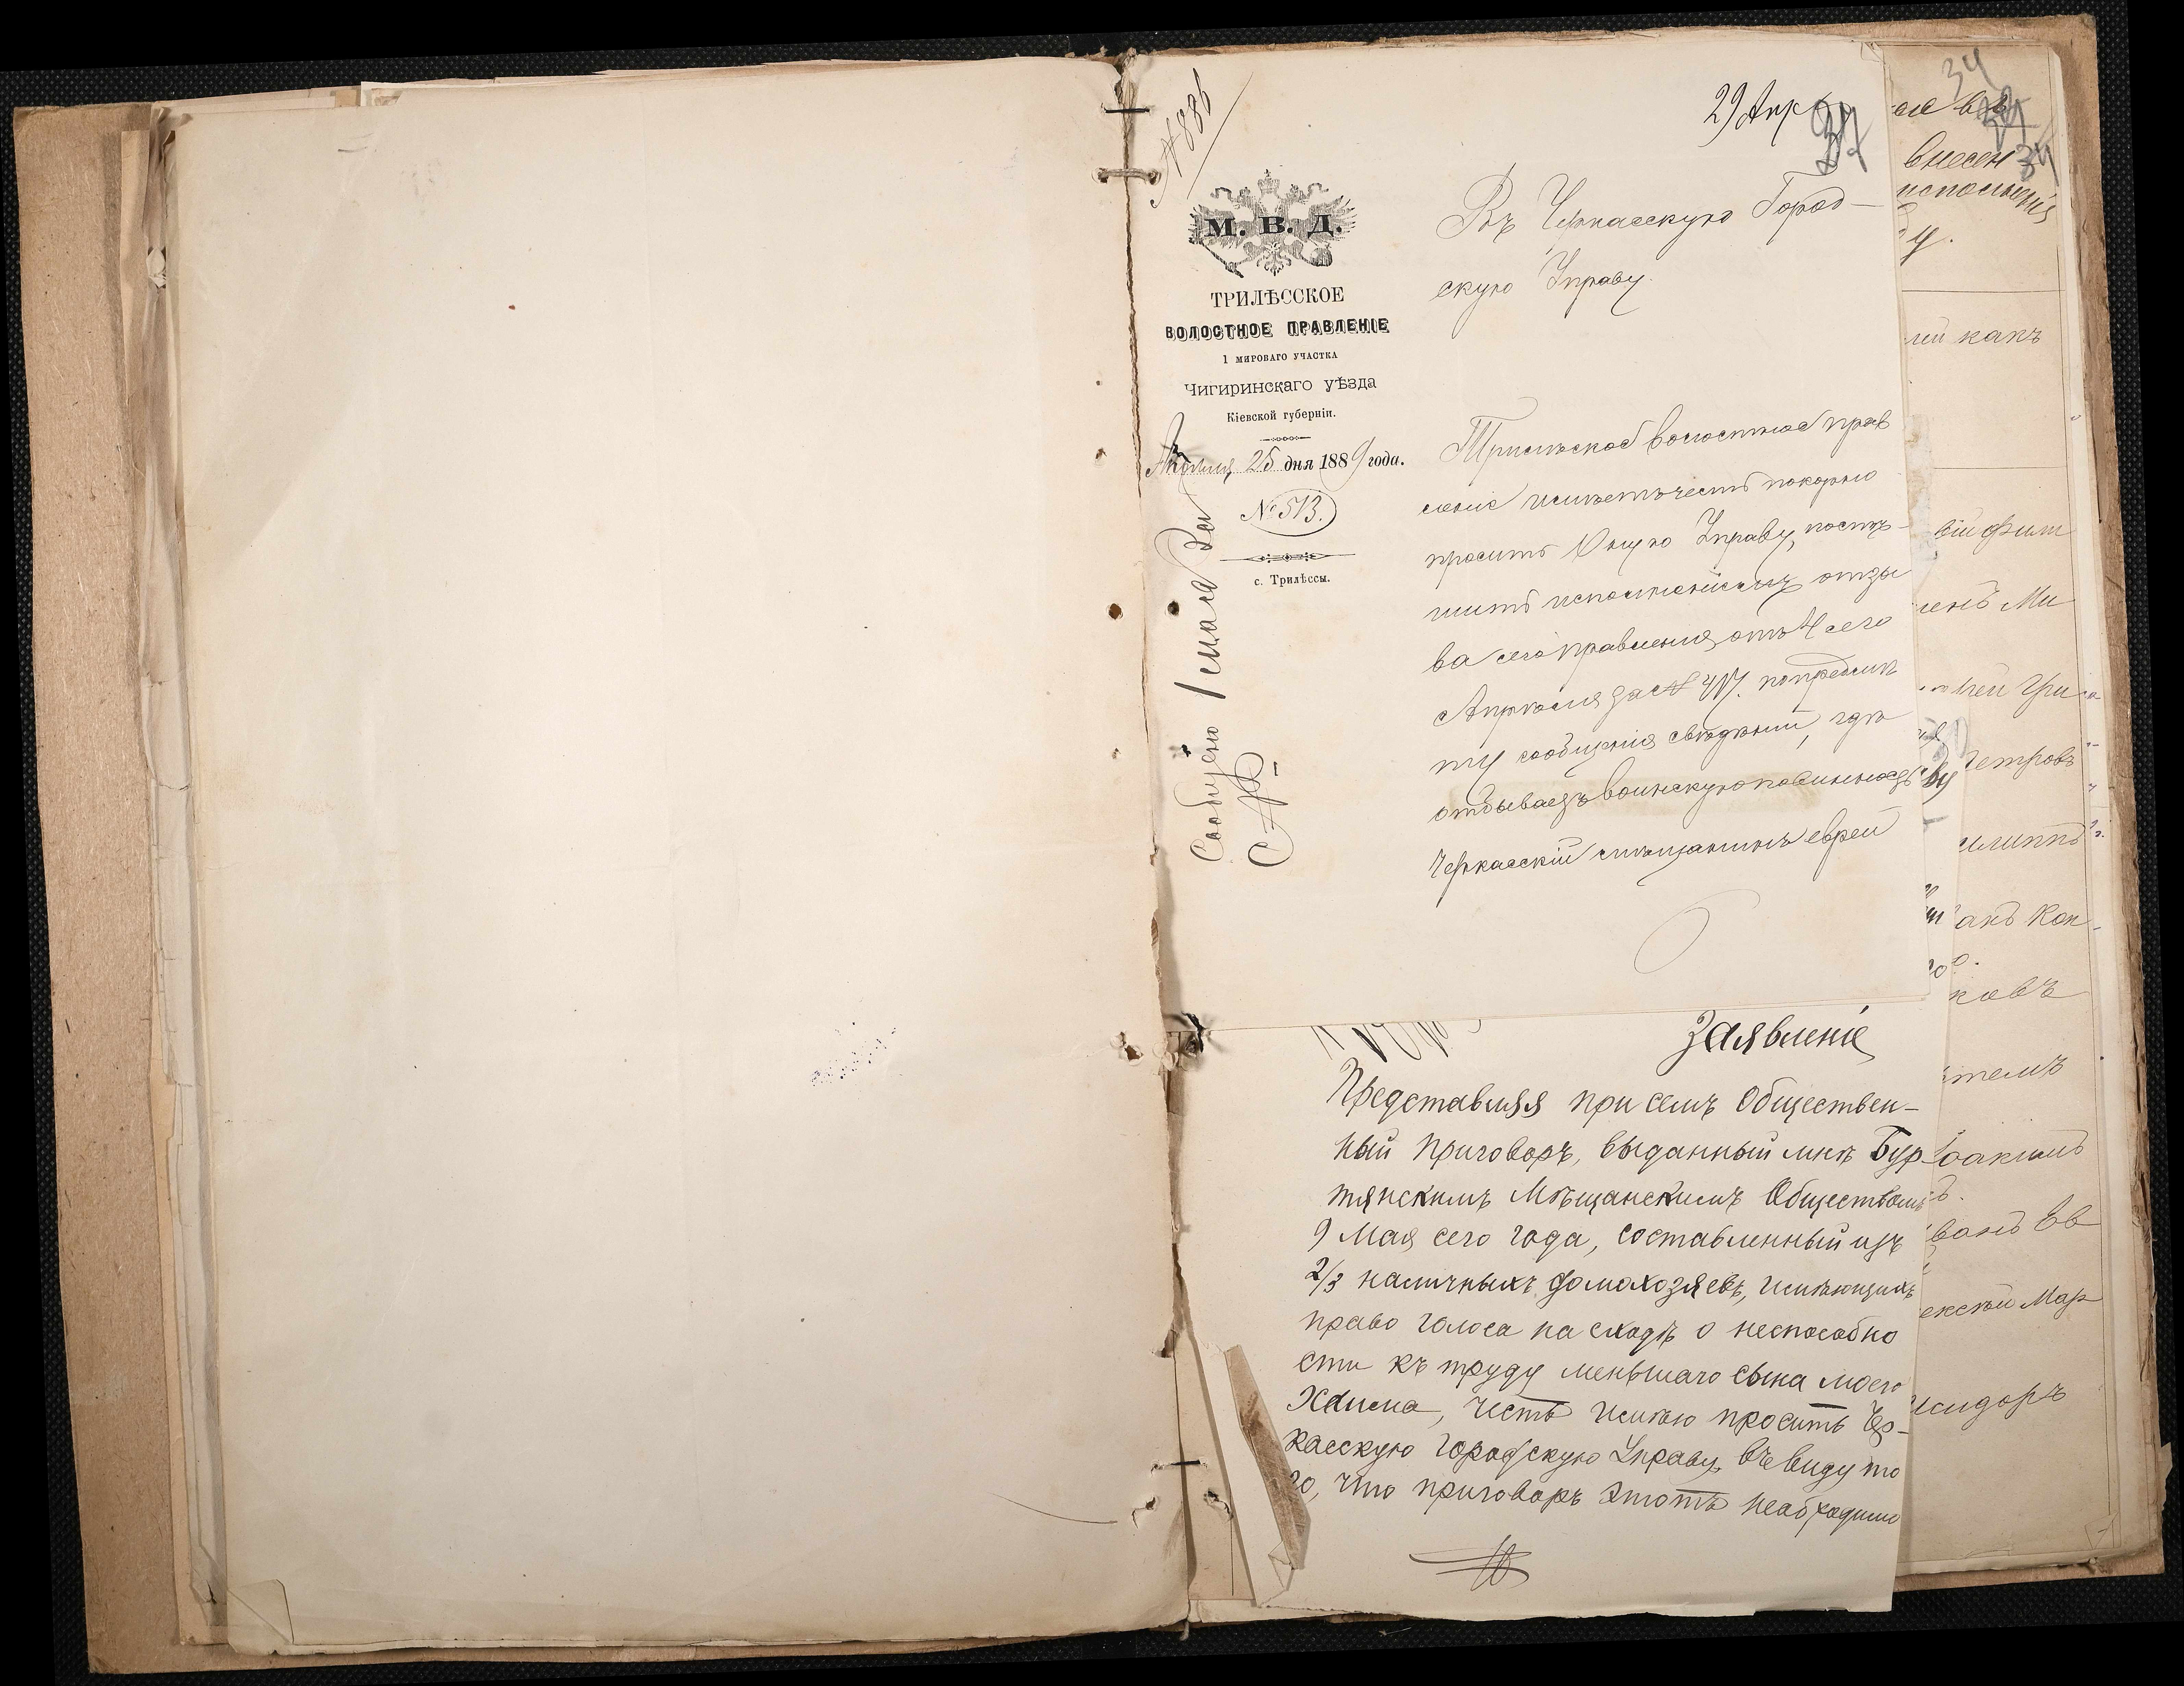 № 886
29 Апр
34
М. В. Д.
ТРИЛѢССКОЕ
ВОЛОСТНОЕ ПРАВЛЕНІЕ
1 МИРОВАГО УЧАСТКА
Чигиринскаго уѣзда
Кіевской губерніи.
Апрѣля 25 дня 1889 года.
№ 513.
с. Трилѣссы.
Сообщено 1 мая
Въ Черкасскую Город-
скую Управу.
Трилѣское волостное прав
леніе имѣетъ честь покорно
просить Оную Управу, поспѣ-
шить исполненіемъ отзы
ва сего правленія отъ 4 сего
Апрѣля за № 417. по предме
ту сообщенія свѣдѣній, гдѣ
отбываетъ воинскую повинность
Черкасскій мѣщанинъ еврей
Заявленіе
Представляя при семъ Обществен-
ный приговоръ, выданный мнѣ Бур
тянскимъ Мѣщанскимъ Обществомъ
9 Мая сего года, составленный изъ
2/3 наличныхъ домохозяевъ, имѣющихъ
право голоса на сходѣ о неспособно
сти къ труду меньшаго сына моего
Хаима, честь имѣю просить Чер-
касскую городскую Управу, въ виду то
го, что приговоръ этотъ необходимо
34
внесен
исполненія
какъ
Ми
Гри
етровъ
анъ Кон
ковъ
телъ
оакимъ
ванъ Ев
Мар
сидоръ